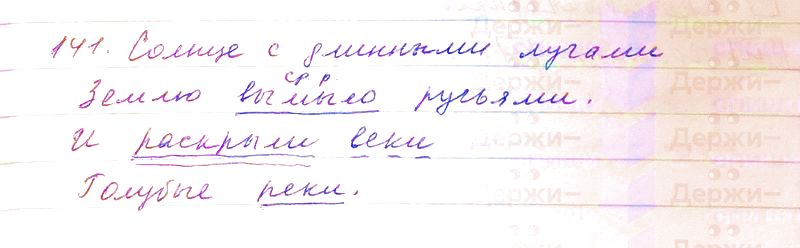 141. Солнце с длинными лучами
Землю вымыло ручьями.
И раскрыли веки
Голубые реки.
Держи-
Держи-
Держи-
Держи-
Держи-
Держи-
Держи-
Держи-